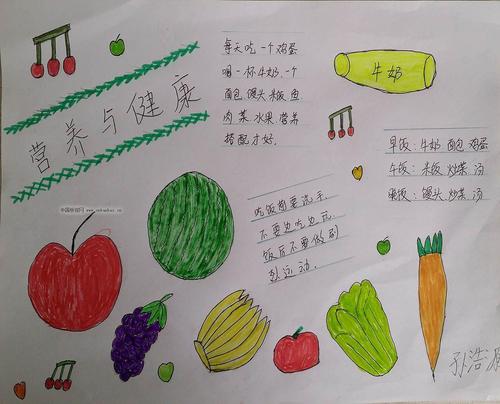 营养与健康
每天吃一个鸡蛋
喝一杯牛奶、一个
面包、馒头、米饭、鱼、
肉、菜、水果、营养
搭配才好。
牛奶
早饭：牛奶 面包 鸡蛋
午饭：米饭 炒菜 汤
晚饭：馒头 炒菜 汤
吃饭前要洗手，
不要边吃边玩，
饭后不要做剧
烈运动。
孙浩